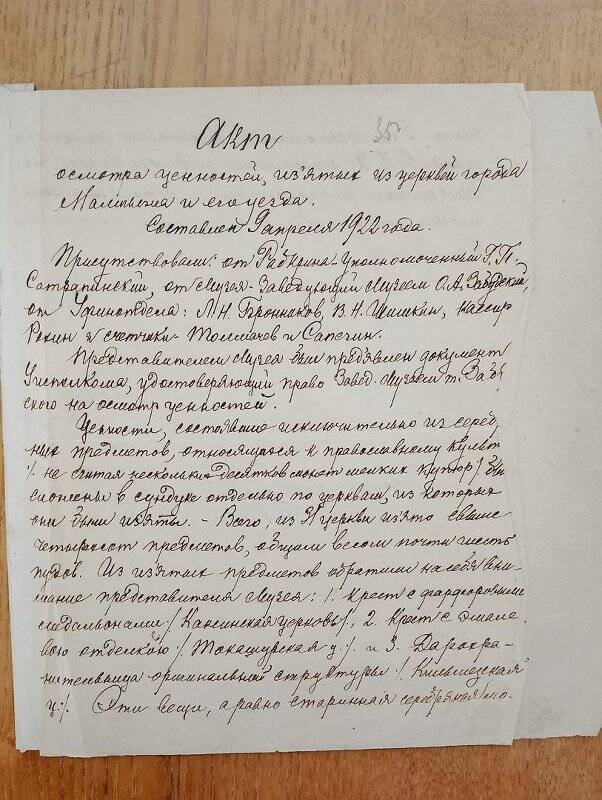 Акт
35
осмотра ценностей, из'ятых из церквей города
Малмыжа и его уезда.
Составлен 9 апреля 1922 года.
Присутствовали: от Рабкрина - Уполномоченный Г.П.
Сатрапинский, от Музея - Заведующий Музеем О.А.
от Финотдела: Л.Н. Бронников, В.Н. Шишкин, кассир
Рокин и счетчики - Толмачов и Сапегин.
Представителем Музея был пред'явлен документ
Исполкома, удостоверяющий право Завед. Музеем т.
ского на осмотр ценностей.
Ценности, состоявшие исключительно из сереб
ных предметов, относящихся к православному культ
/ не считая нескольких десятков монет мелких купюр / бы
сложены в сундуке отдельно по церквам, из которых
они были из'яты. - Всего, из 31 церкви из'ято свыше
четырехсот предметов, общим весом почти шесть
пудов. Из из'ятых предметов обратили на себя вни-
мание представителя Музея: 1. Крест с фарфоровыми
медальонами / Кансинская церковь /, 2. Крест с эмале-
вою отделкою / Токашурская ц. / и 3. Дарохра-
нительница оригинальной структуры / Кильмезская
ц. /. Эти вещи, а равно старинная серебряная мо-